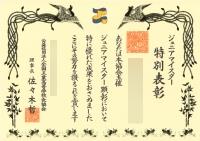 ジュニアマイスター
特別表彰
あなたは本協会主催
ジュニアマイスター顕彰において
特に優れた成果をおさめました
ここにその努力を讃え表彰します
公益社団法人全国工業高等学校長協会
理事長 佐々木哲